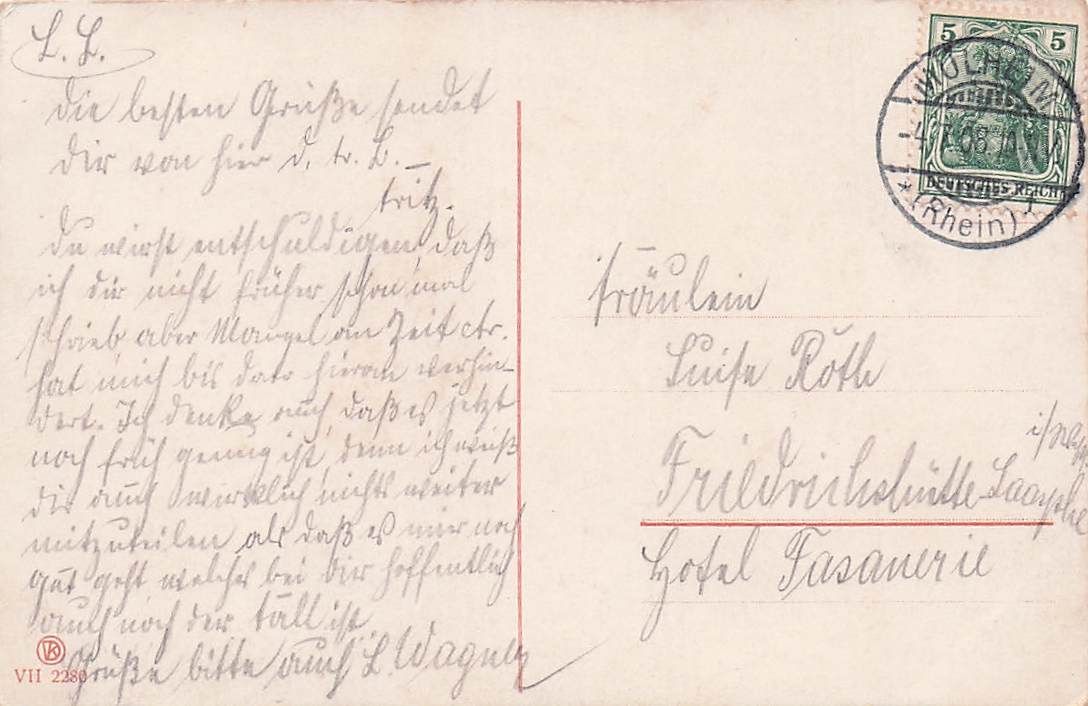 L. L.
Die besten Grüße sendet
Dir von hier d. tr. L. –
Fritz.
Du wirst entschuldigen, daß
ich dir nicht früher schon mal
schrieb aber Mangel an Zeit etr.
hat mich bis dato hieran verhin-
dert. Ich denke auch, daß es jetzt
noch früh genug ist, denn ich weiß
dir auch wirklich nichts weiter
mitzuteilen als daß es mir noch
gut geht welches bei Dir hoffentlich
auch noch der Fall ist
Grüße bitte auch L. Wagner
VII 2280
5 5
DEUTSCHES REICH
MÜLHEIM
(Rhein) 1
Fräulein
Luise Roth
Friedrichshütte-Laasphe
i/Westf
Hotel Fasanerie